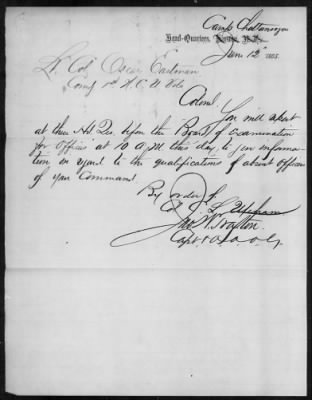 Camp Chattanooga
Head-Quarters,
June 12th 1865.
Lt Col Oscar Eastman
Comg 1st H. C. U Vols
Colonel. You will report
at these Hd Qrs before the Board of examination
for Officers at 10 A.M this day to give informa
tion in regard to the qualifications of absent officers
of your Command.
By order of
Capt &